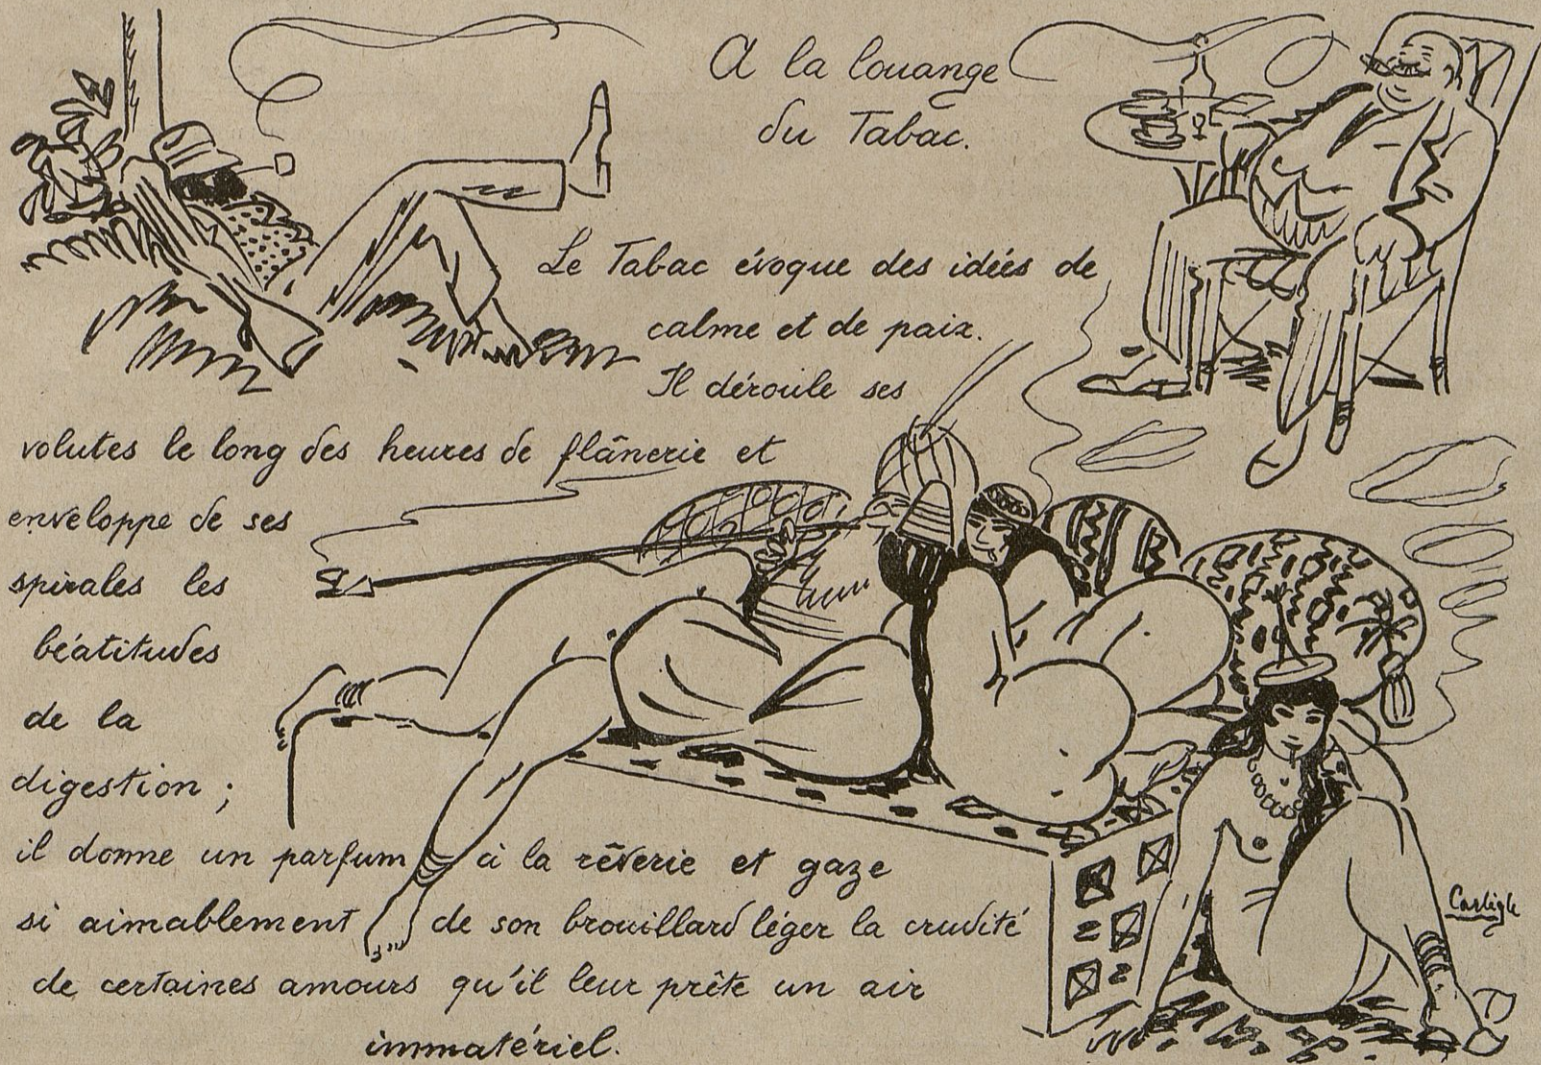 A la louange
du Tabac.
Le Tabac évoque des idées de
calme et de paix.
Il déroule ses
volutes le long des heures de flânerie et
enveloppe de ses
spirales les
béatitudes
de la
digestion ;
il donne un parfum à la rêverie et gaze
si aimablement de son brouillard léger la crudité
de certaines amours qu'il leur prête un air
immatériel.